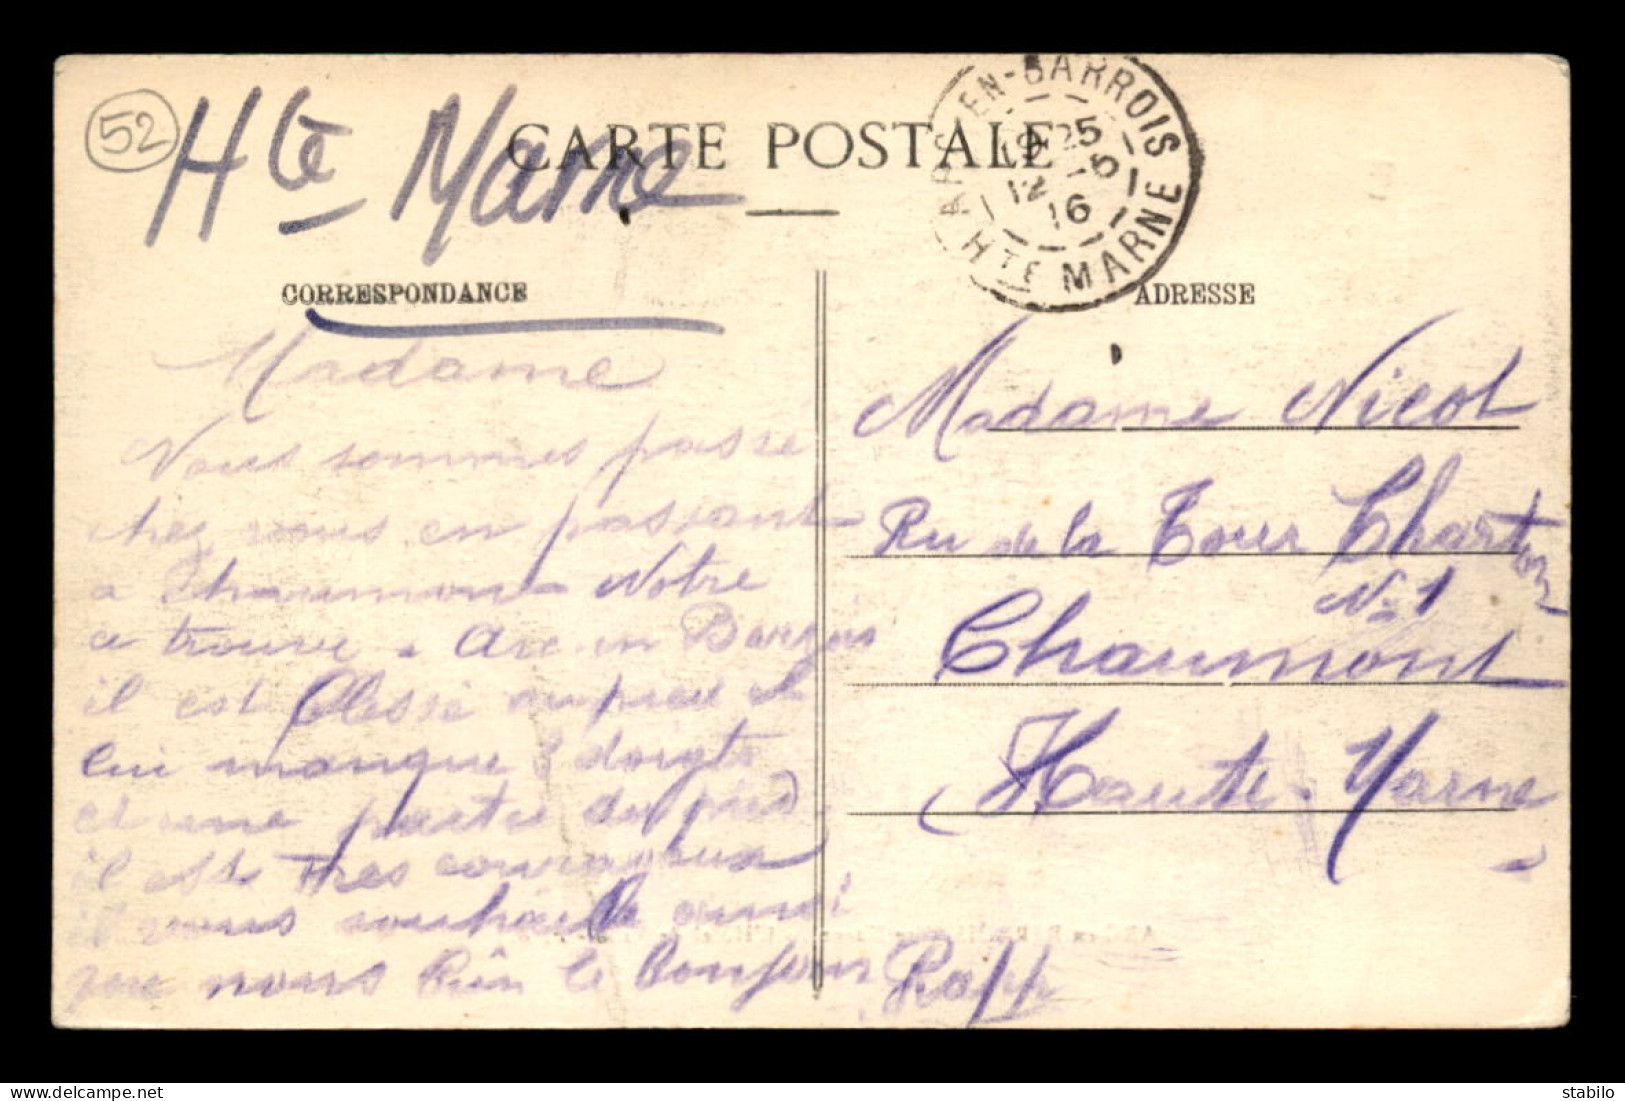 52
Hte Marne
CARTE POSTALE
ARC-EN-BARROIS
19 25
12 -5
16
HTE MARNE
CORRESPONDANCE
ADRESSE
Madame
Nous sommes passé
chez vous en passant
a Chaumont Notre
a trouve a Arc en Barrois
il est Blessé au pied il
lui manque 2 doigts
et une partie du pied
il est tres courageux
il vous souhaite ainsi
que nous bien le Bonjour
Rapp
Madame Nicol
Ru de la Tour Charton
No 1
Chaumont
Haute-Marne
stabilo